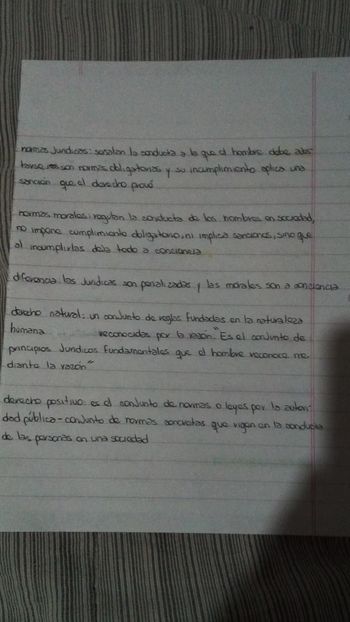 normas Jurídicas: señalan la conducta a la que el hombre debe abs
tenerse, son normas obligatorias y su incumplimiento aplica una
sanción que el derecho prevé
normas morales: regulan la conducta de los hombres en sociedad,
no impone cumplimiento obligatorio, ni implica sanciones, sino que
al incumplirlas deja todo a conciencia
diferencia: las Jurídicas son penalizadas y las morales son a conciencia
derecho natural: un conjunto de reglas fundadas en la naturaleza
humana reconocidas por la razón. "Es el conjunto de
principios Jurídicos fundamentales que el hombre reconoce me
diante la razón"
derecho positivo: es el conjunto de normas o leyes por la autori
dad pública - conjunto de normas concretas que rigen en la conducta
de las personas en una sociedad